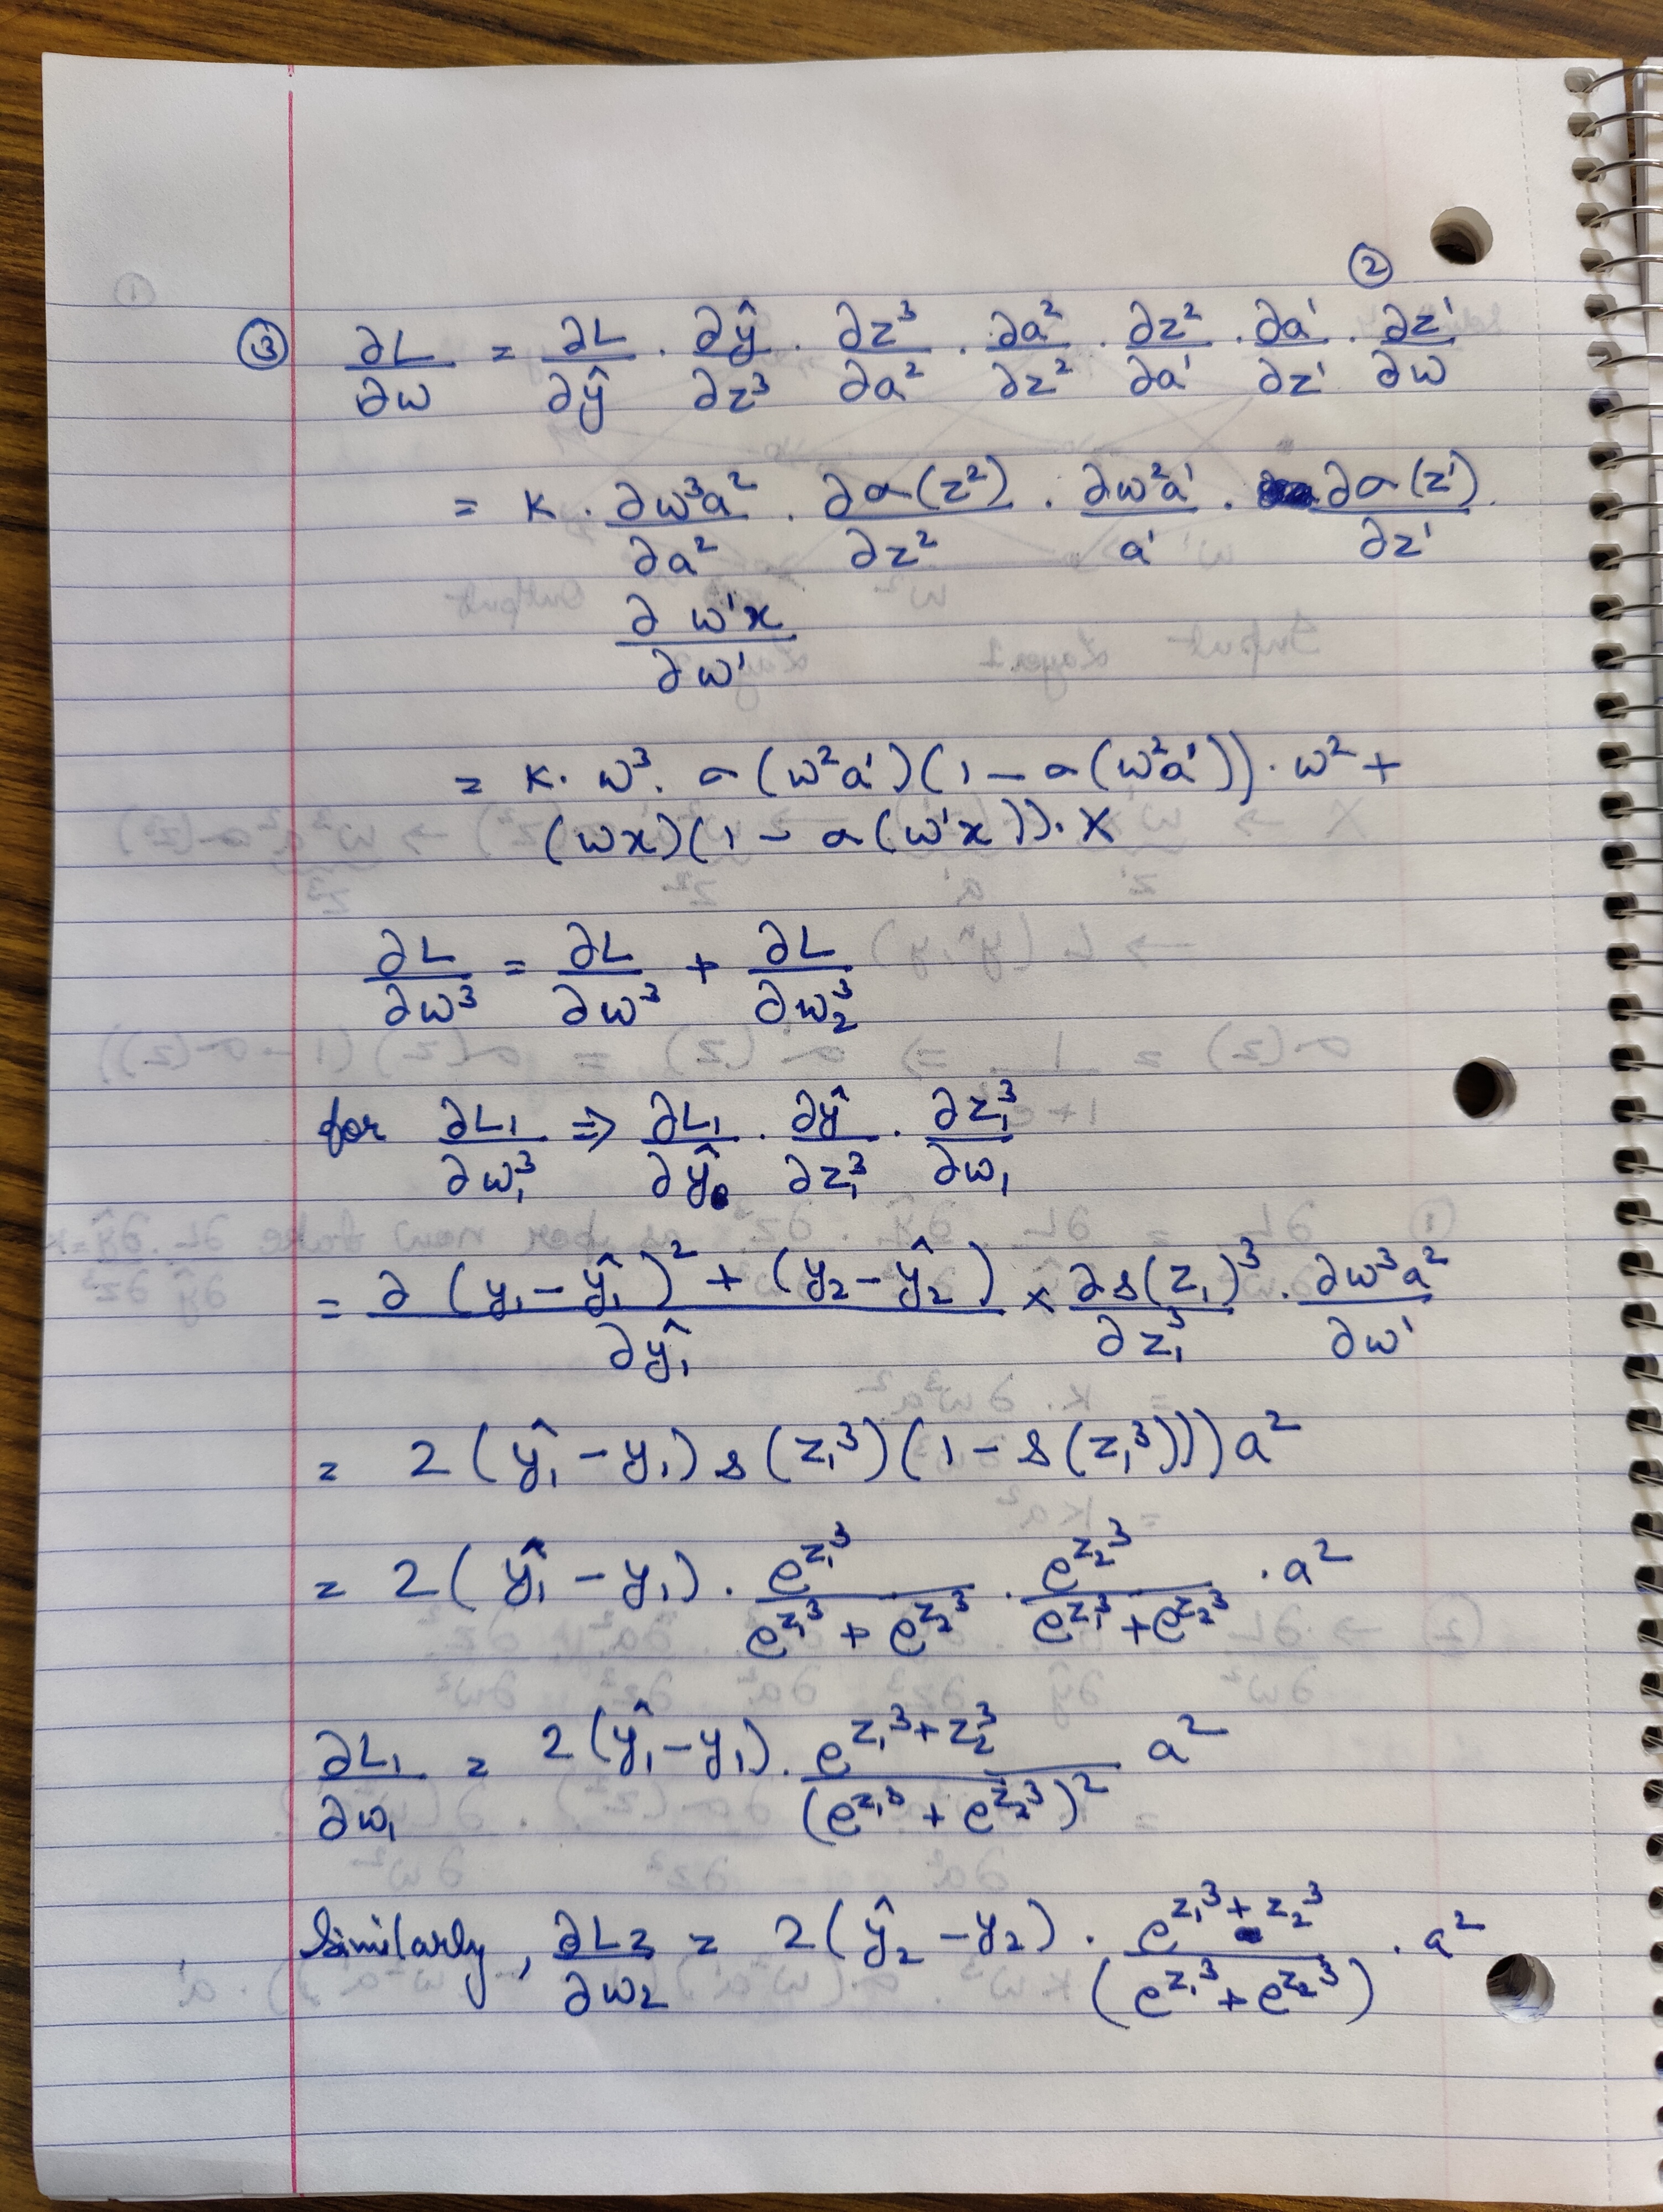 ②
③ ∂L/∂w = ∂L/∂ŷ · ∂ŷ/∂z³ · ∂z³/∂a² · ∂a²/∂z² · ∂z²/∂a¹ · ∂a¹/∂z¹ · ∂z¹/∂w
= K · ∂w³a²/∂a² · ∂σ(z²)/∂z² · ∂w²a¹/a¹ · ∂σ(z¹)/∂z¹ ·
∂ w¹x/∂w¹
= K · w³ · σ(w²a¹)(1 – σ(w²a¹)) · w² +
(wx)(1 – σ(w¹x)) · X
∂L/∂w³ = ∂L/∂w³ + ∂L/∂w₂³
for ∂L₁/∂w₁³ ⇒ ∂L₁/∂ŷ · ∂ŷ/∂z₁³ · ∂z₁³/∂w₁
= ∂ (y₁ – ŷ₁)² + (y₂ – ŷ₂)/∂ŷ₁ × ∂s(z₁)³/∂z₁³ · ∂w³a²/∂w¹
= 2(ŷ₁ – y₁) s(z₁³)(1 – s(z₁³)))a²
= 2(ŷ₁ – y₁) · e^(z₁³)/(e^(z₁³) + e^(z₂³)) · e^(z₂³)/(e^(z₁³) + e^(z₂³)) · a²
∂L₁/∂w₁ = 2(ŷ₁ – y₁) · e^(z₁³ + z₂³)/(e^(z₁³) + e^(z₂³))² a²
Similarly, ∂L₂/∂w₂ = 2(ŷ₂ – y₂) · e^(z₁³ + z₂³)/(e^(z₁³) + e^(z₂³)) · a²